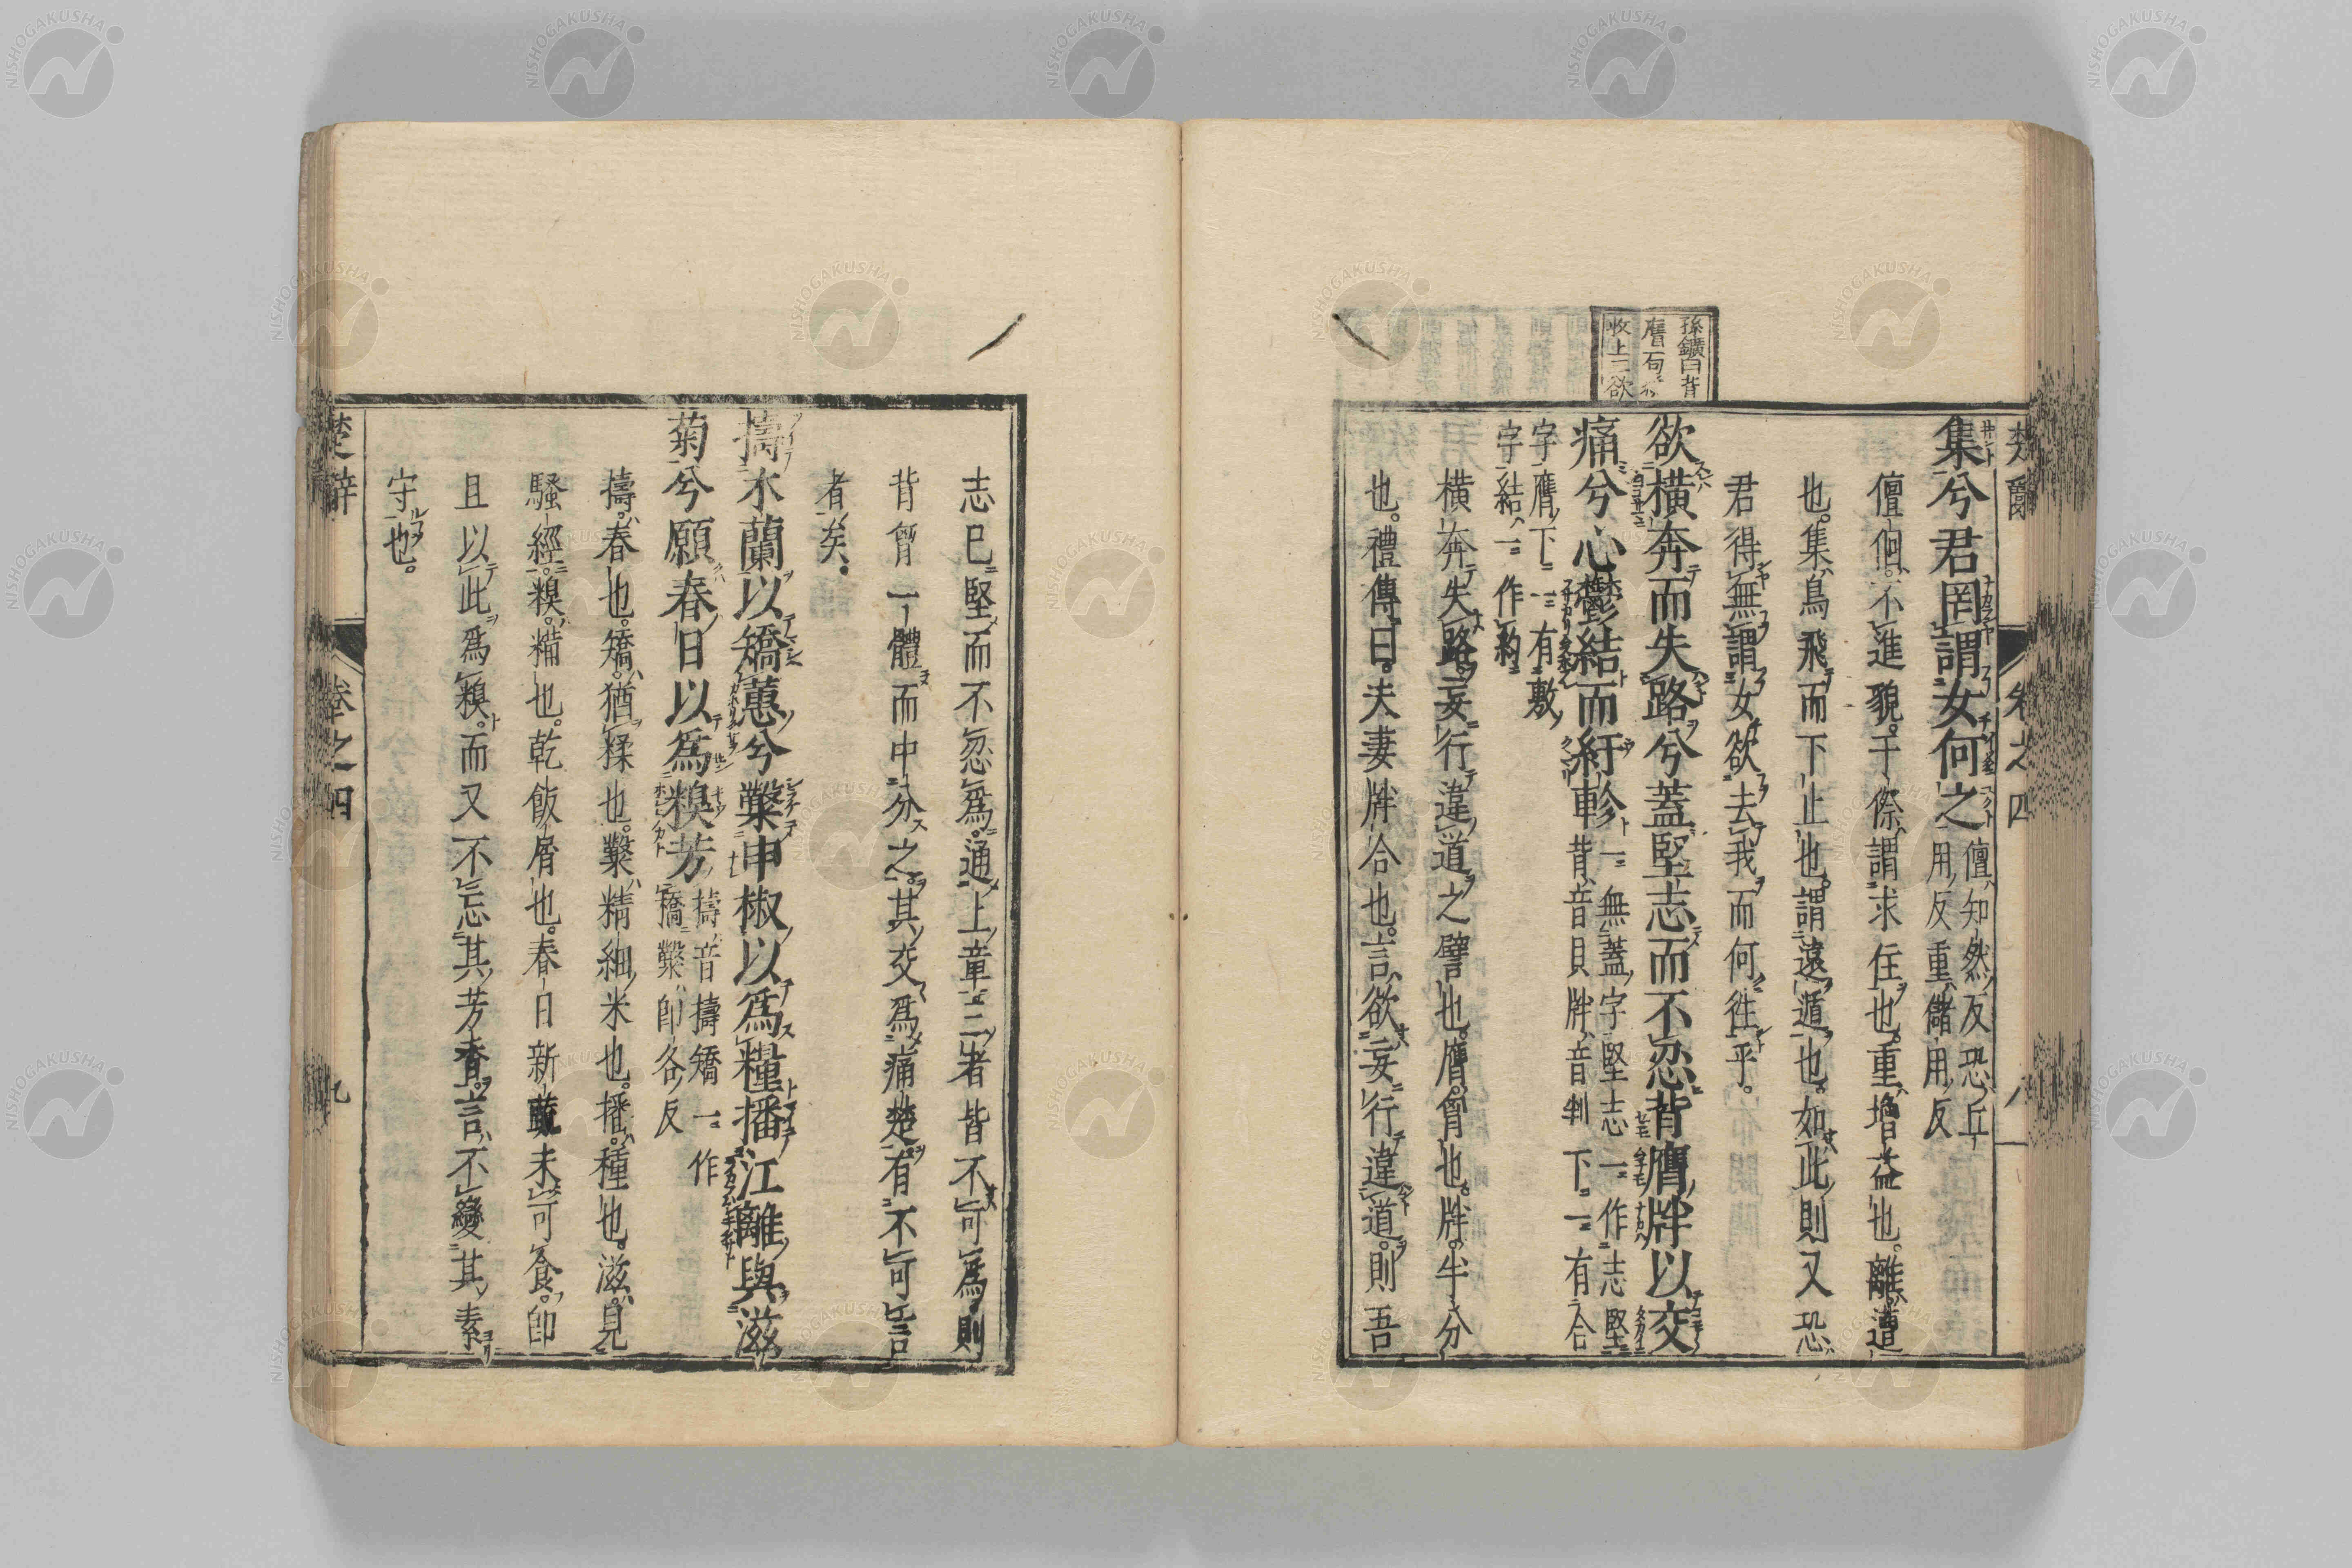 楚辭 卷之四 八
集兮君罔謂女何之儃知然反恐丘
用反重儲用反
儃佪不進貌干傺謂求住也重增益也離遭
也集鳥飛而下止也謂遠遁也如此則又恐
君得無謂女欲去我而何徃乎
孫鑛曰背
膺句
收上二欲
欲橫奔而失路兮蓋堅志而不忍背膺牉以交
痛兮心鬱結而紆軫一無蓋字堅志一作志堅
背音貝牉音判下一有合
字膺下一有敷
字結一作約
橫奔失路妄行違道之譬也膺胷也牉半分
也禮傳曰夫妻牉合也言欲妄行違道則吾
志已堅而不忍為通上章三者皆不可為則
背胷一體而中分之其交為痛楚有不可言
者矣
擣木蘭以矯蕙兮鑿申椒以為糧播江離與滋
菊兮願春日以為糗芳擣音擣矯一作
撟鑿即各反
擣舂也矯猶揉也鑿精細米也播種也滋見
騷經糗糒也乾飯屑也春日新蔬未可食即
且以此為糗而又不忘其芳香言不變其素
守也
楚辭 卷之四 九
NISHOGAKUSHA